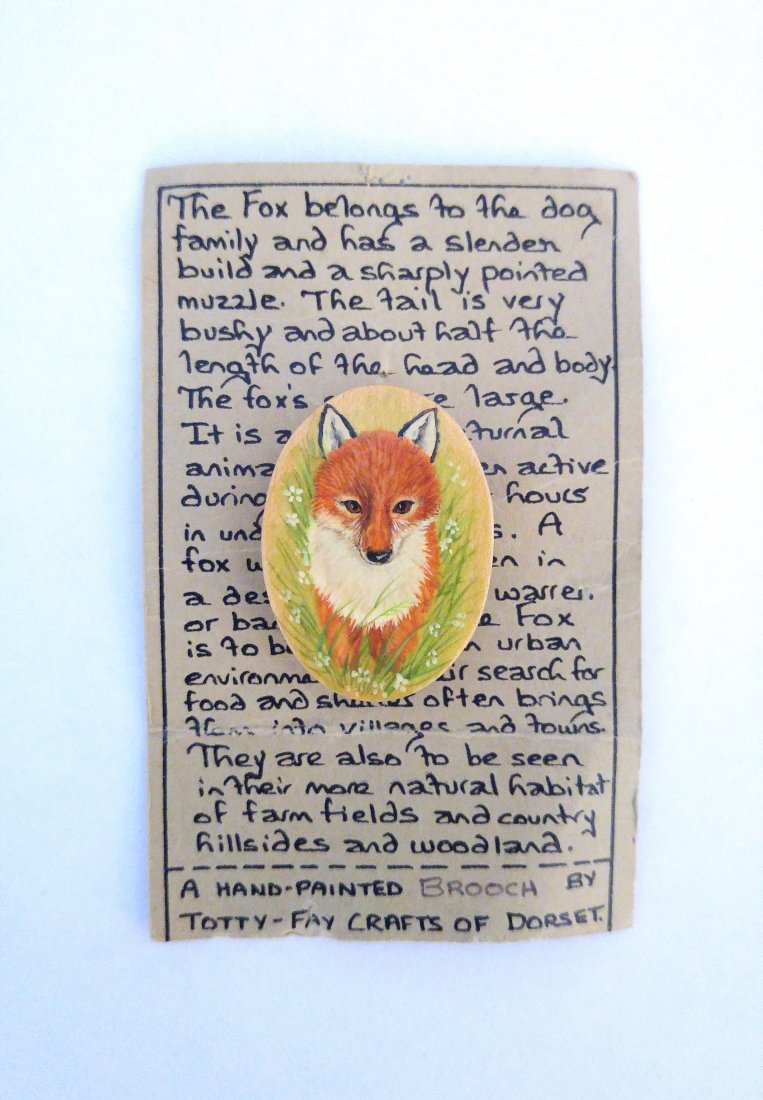 The Fox belongs to the dog
family and has a slender
build and a sharply pointed
muzzle. The tail is very
bushy and about half the
length of the head and body.
The fox's large.
It is a
anima active
during hours
in und s. A
fox w in
a des warren.
or ba Fox
is to b urban
environme search for
food and often brings
them into villages and towns.
They are also to be seen
in their more natural habitat
of farm fields and country
hillsides and woodland.
A HAND-PAINTED BROOCH BY
TOTTY-FAY CRAFTS OF DORSET.